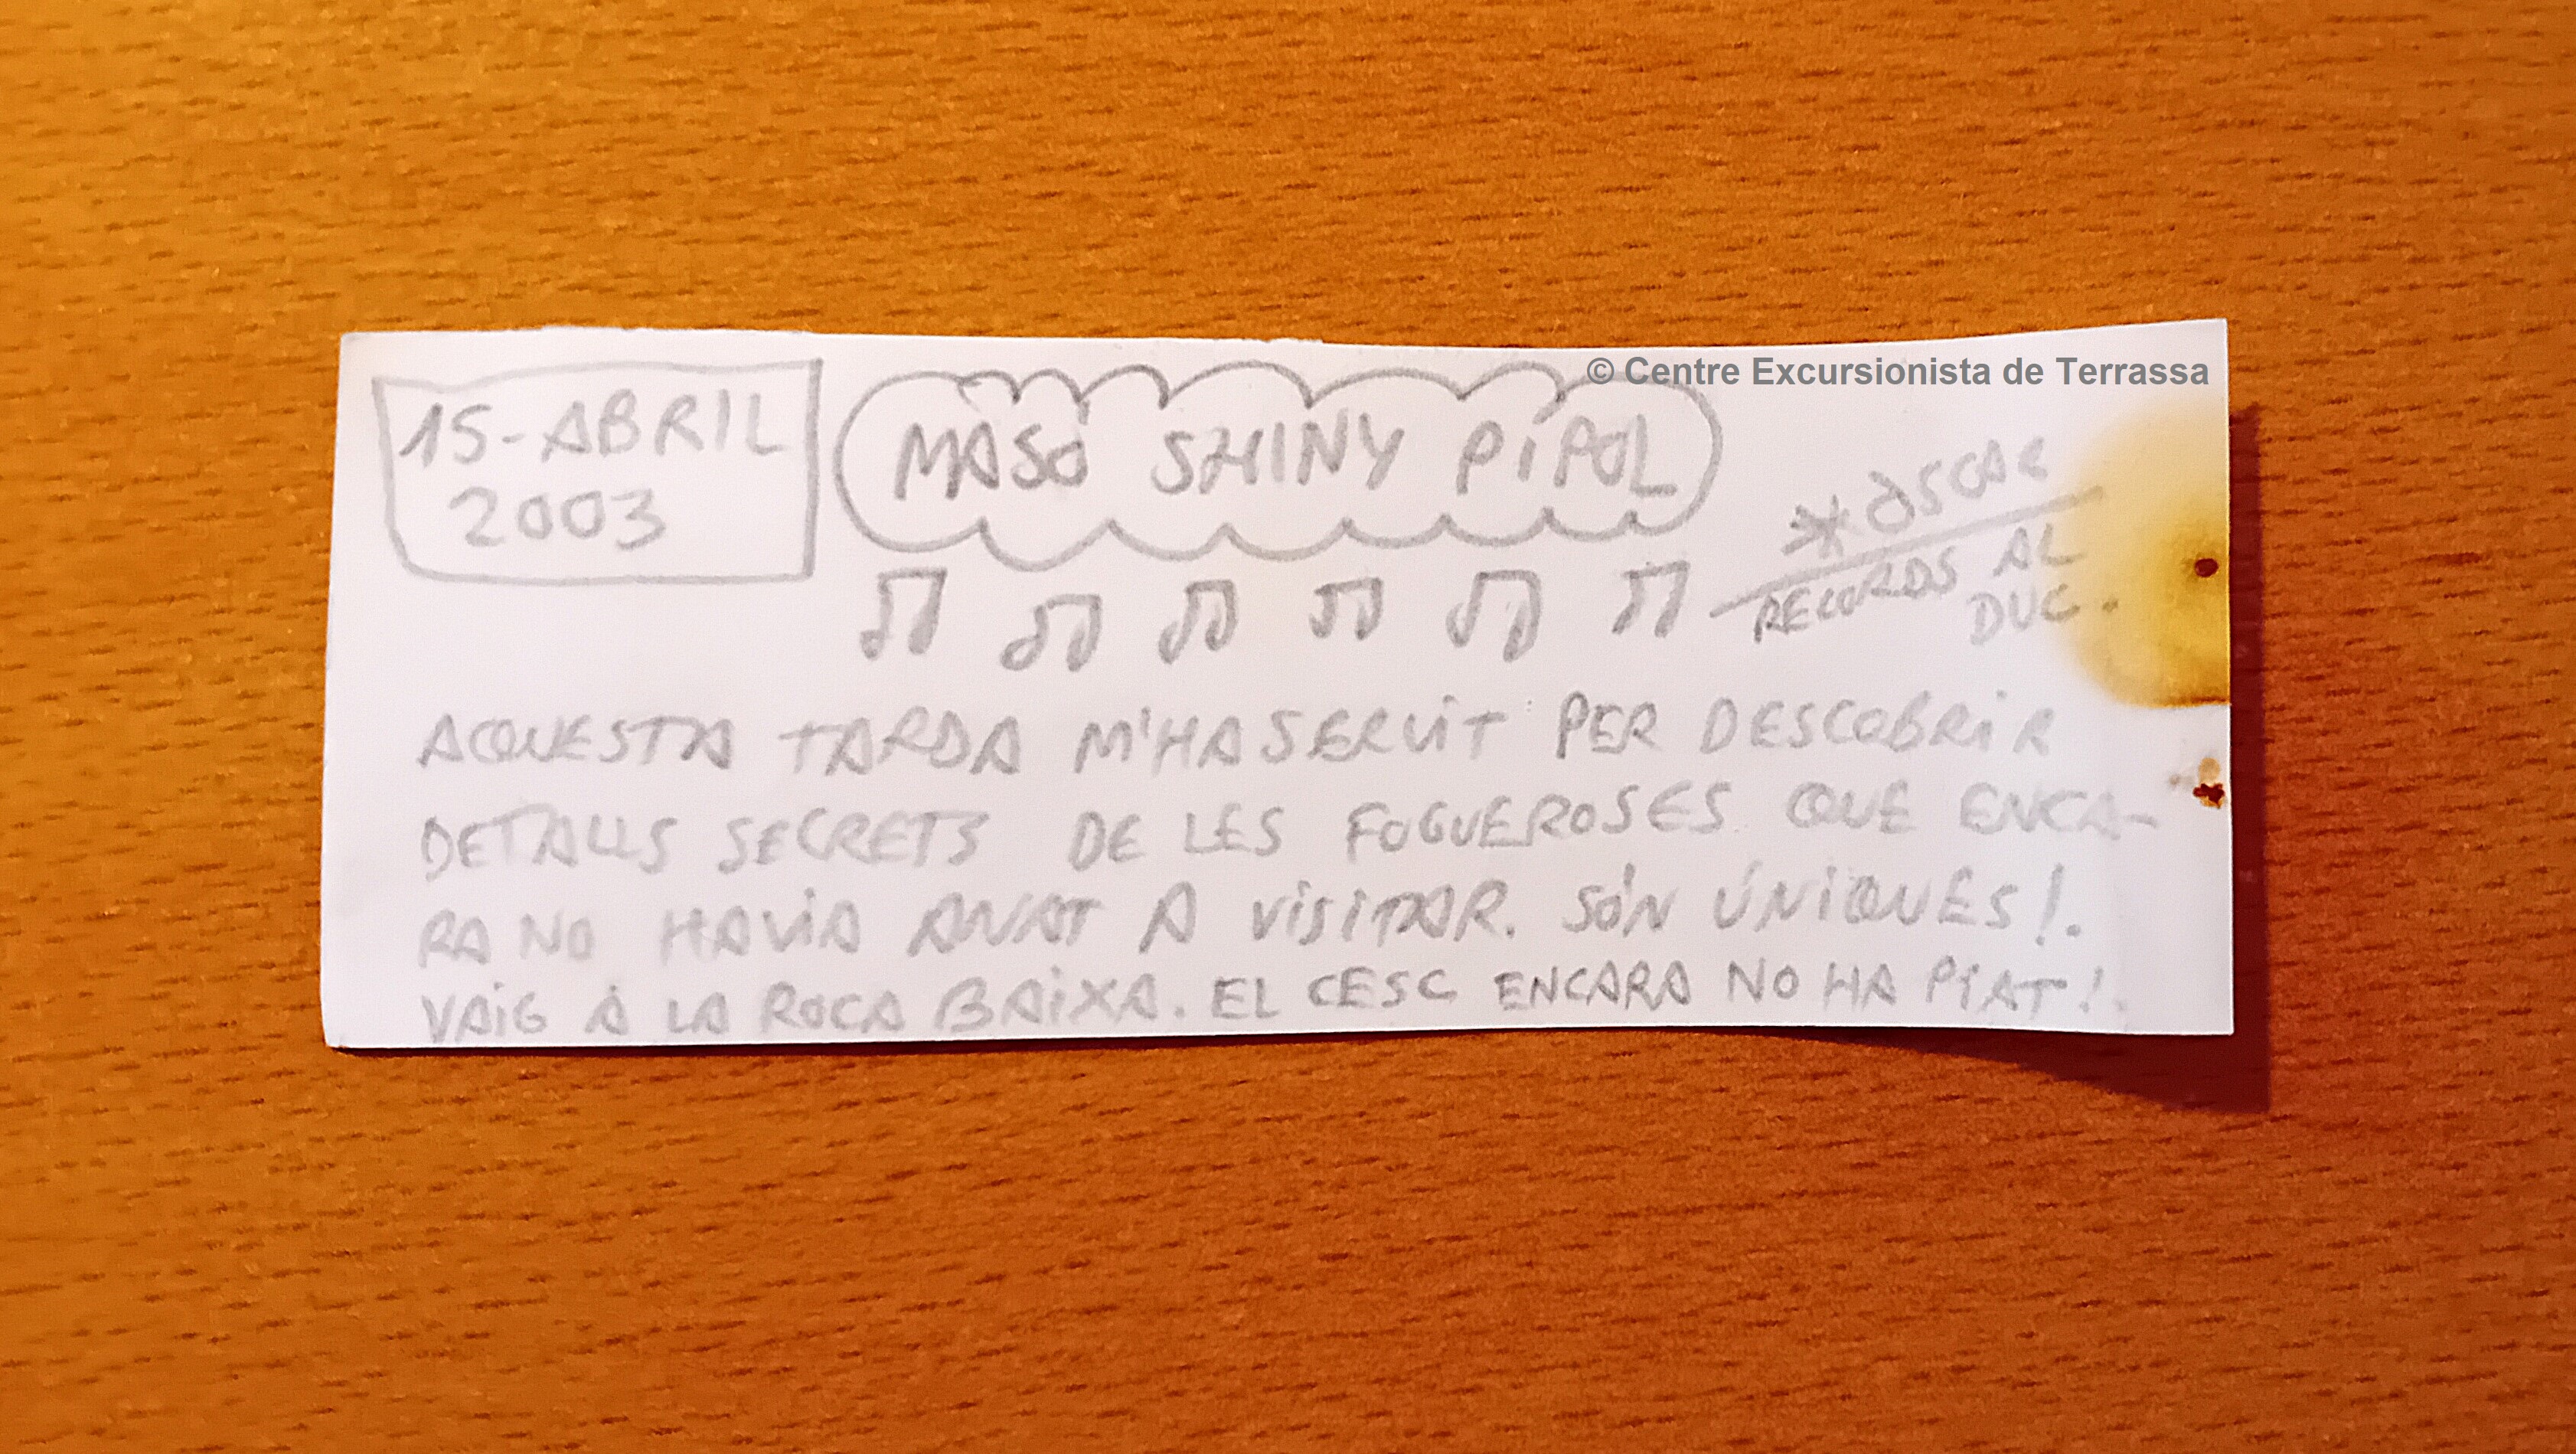 © Centre Excursionista de Terrassa
15-ABRIL
2003
MASÓ SHINY PÍPOL
* ÒSCAR
RECORDS AL
DUC.
AQUESTA TARDA M'HA SERVIT PER DESCOBRIR
DETALLS SECRETS DE LES FOGUEROSES QUE ENCA-
RA NO HAVIA ANAT A VISITAR. SÓN ÚNIQUES!.
VAIG A LA ROCA BAIXA. EL CESC ENCARA NO HA PIAT!.